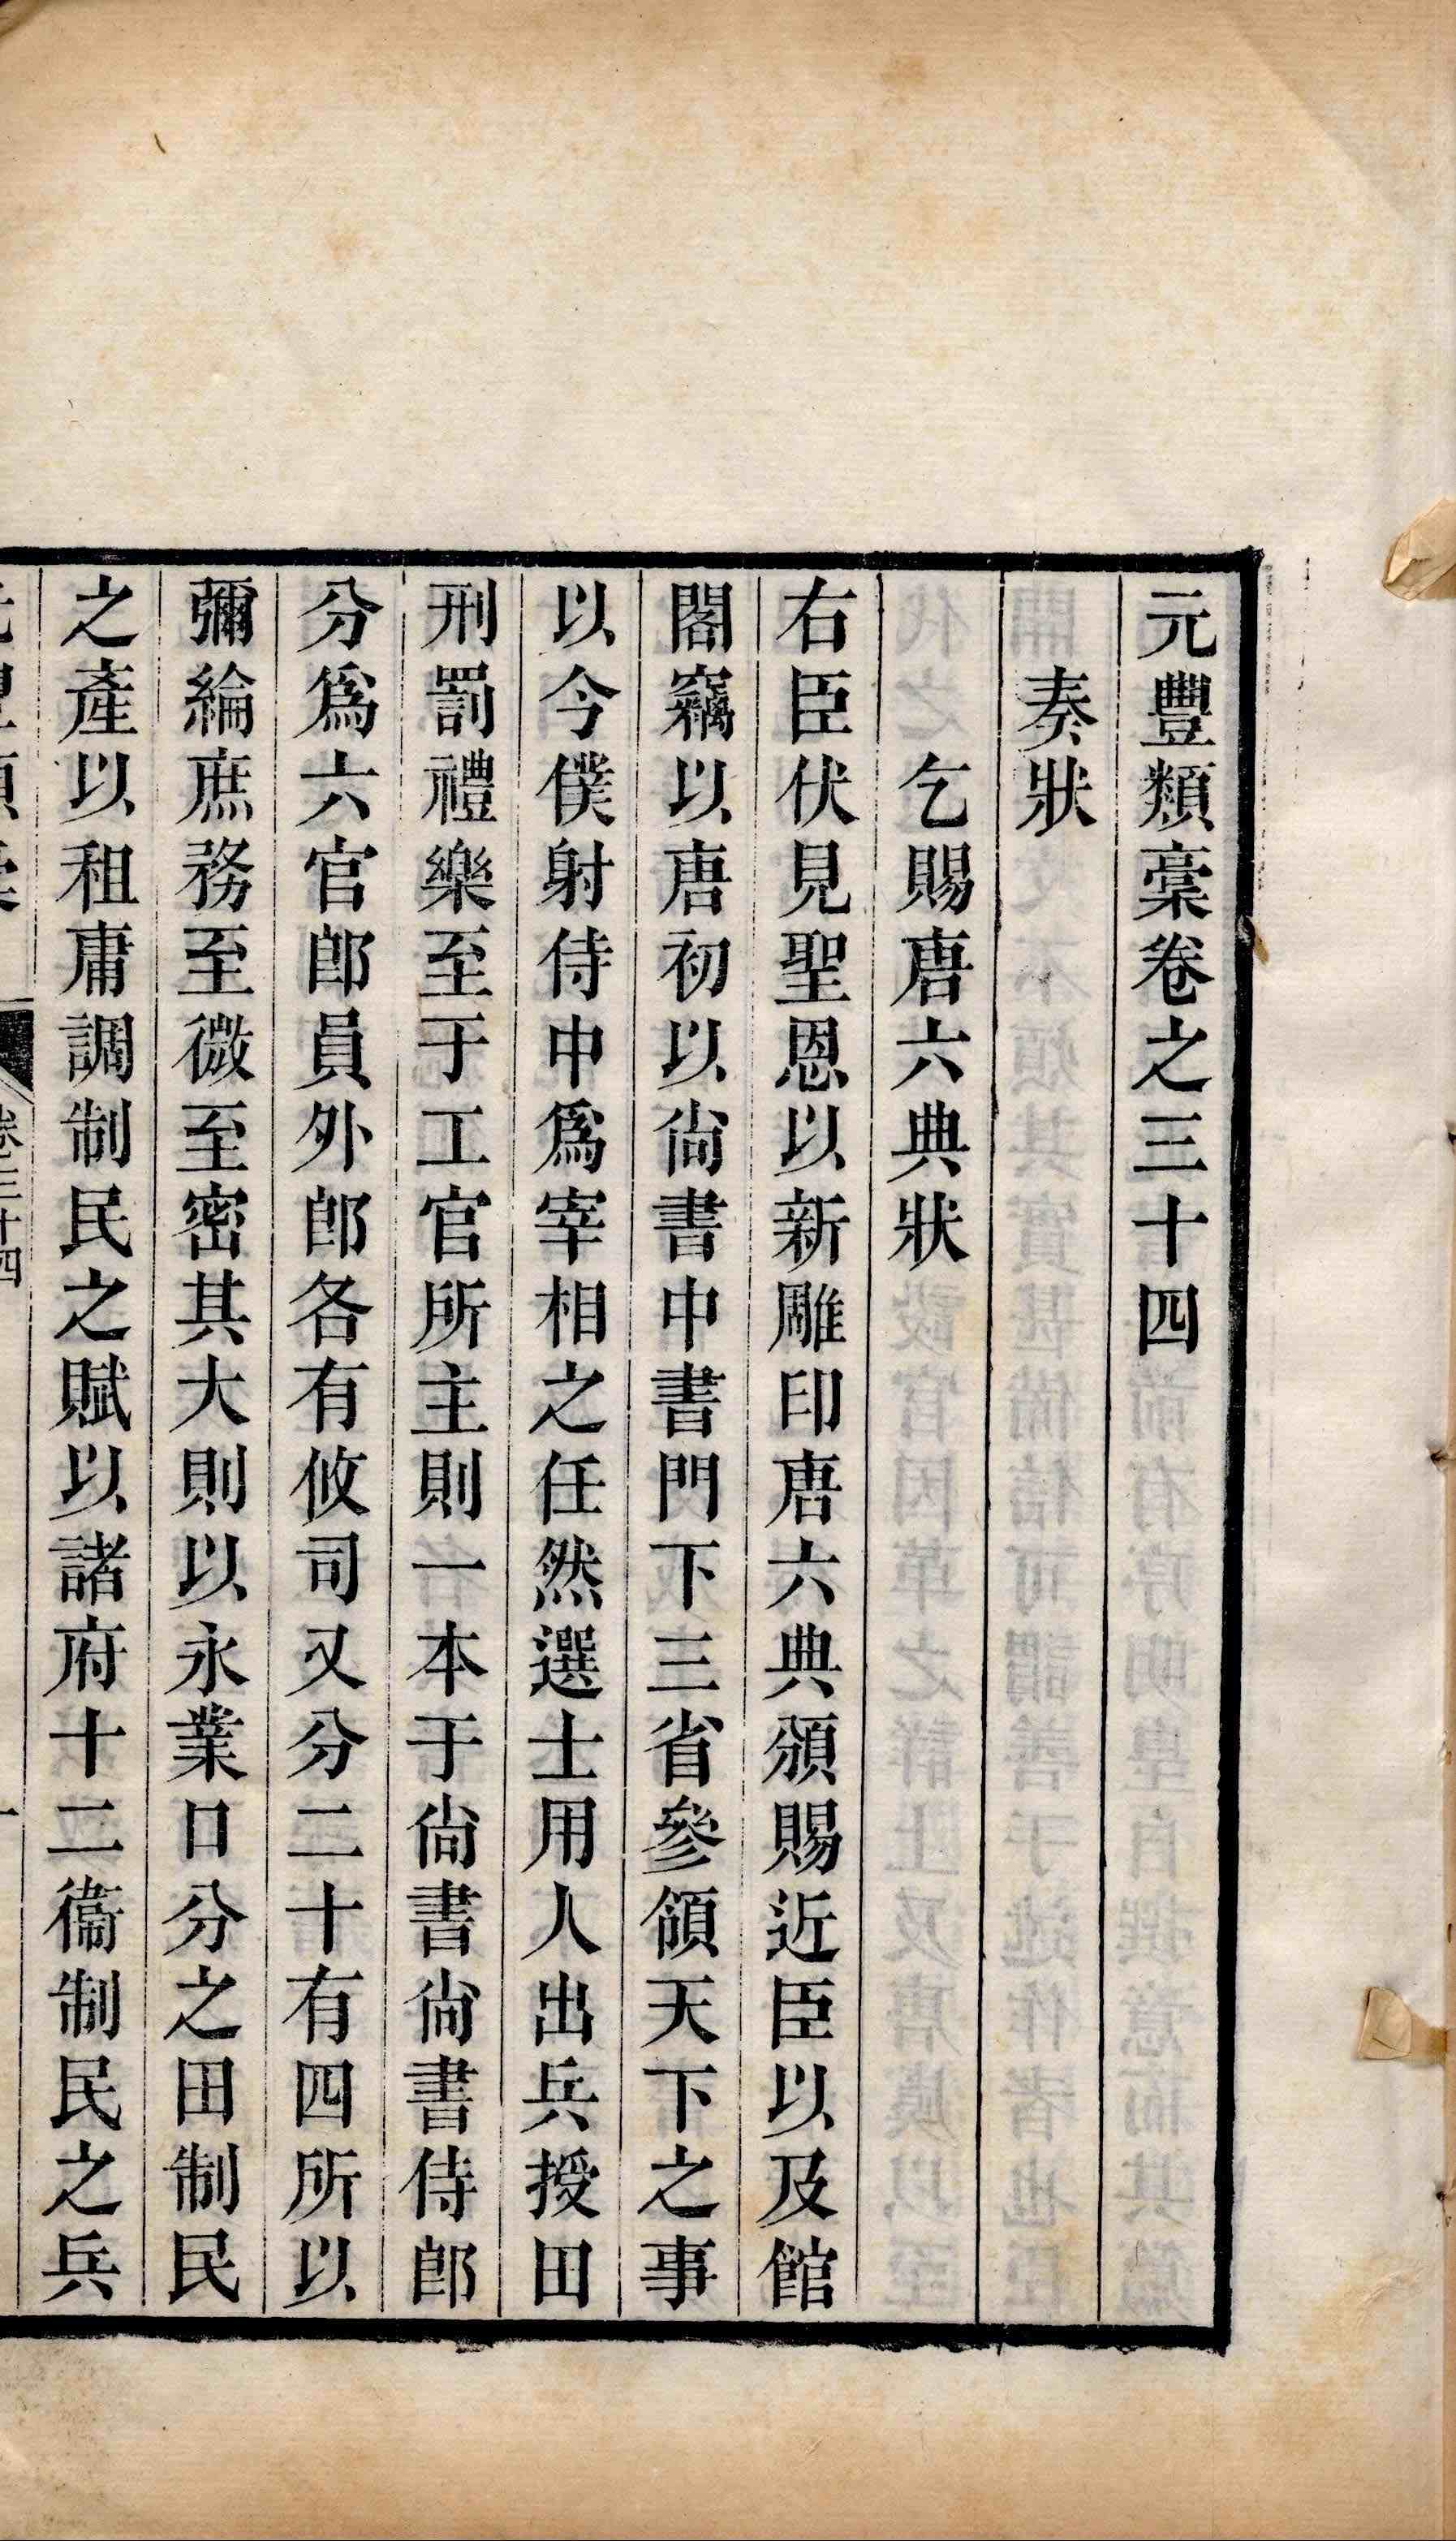 元豐類稾卷之三十四
奏狀
乞賜唐六典狀
右臣伏見聖恩以新雕印唐六典頒賜近臣以及館
閣竊以唐初以尚書中書門下三省參領天下之事
以今僕射侍中爲宰相之任然選士用人出兵授田
刑罰禮樂至于工官所主則一本于尚書尚書侍郎
分爲六官郎員外郎各有攸司又分二十有四所以
彌綸庶務至微至密其大則以永業口分之田制民
之產以租庸調制民之賦以諸府十二衞制民之兵
卷三十四